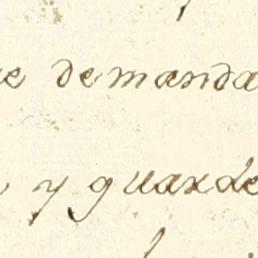 demanda
y guarde